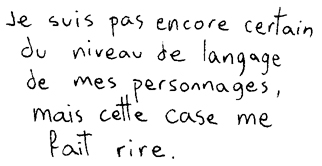 Je suis pas encore certain
du niveau de langage
de mes personnages,
mais cette case me
fait rire.